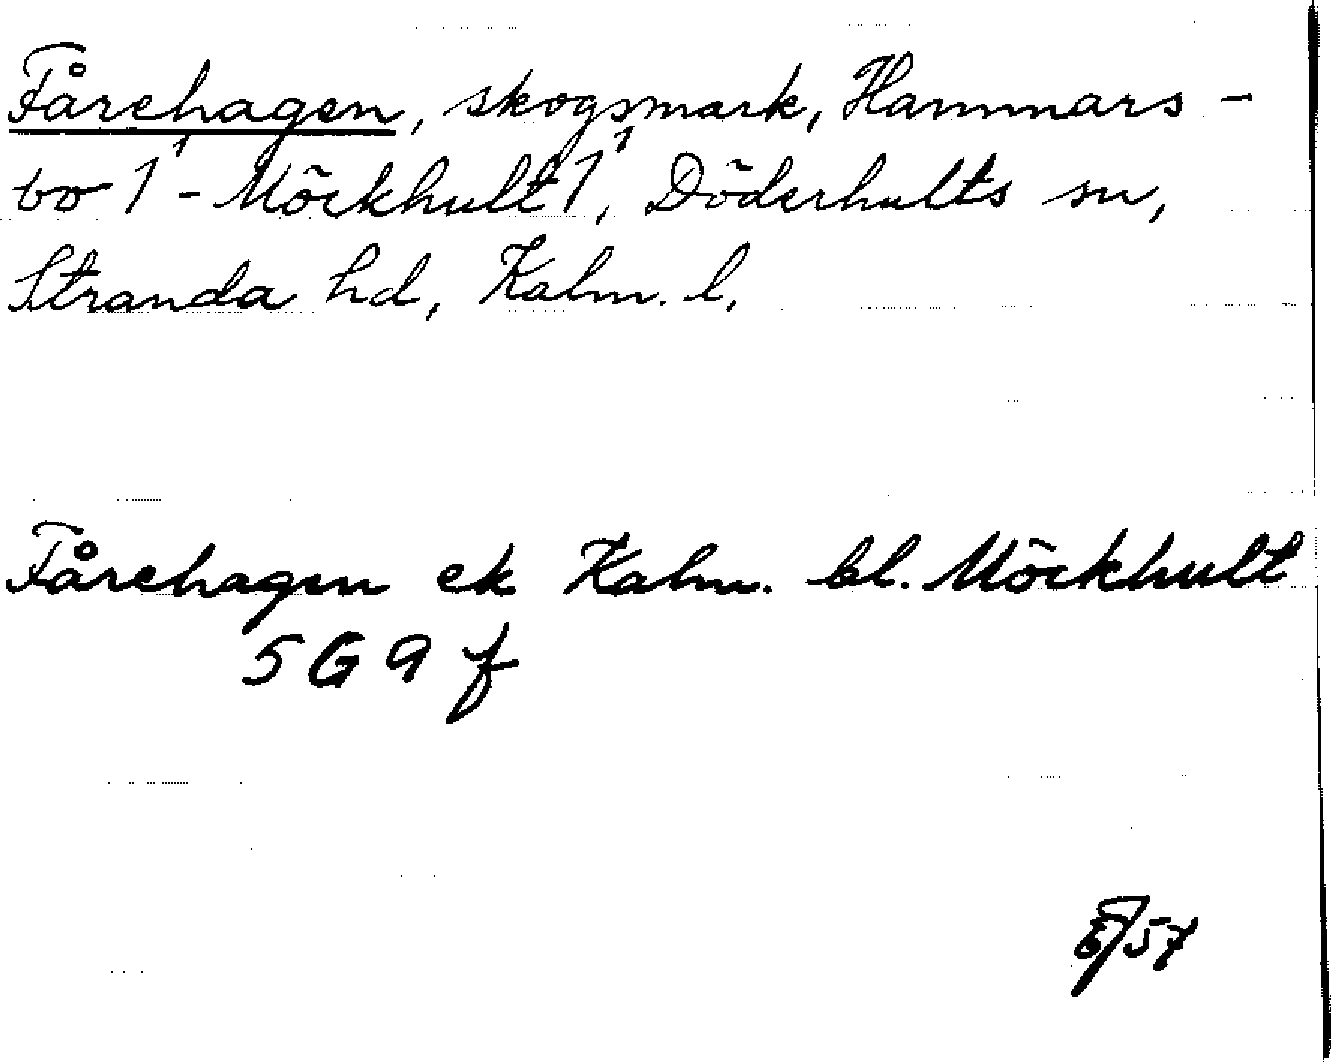 Fårehagen, skogsmark, Hammars-
bo 1¹ - Möckhult 1¹, Döderhults sn,
Stranda hd, Kalm. l.
Fårehagen ek Kalm. bl. Möckhult
5 G 9 f